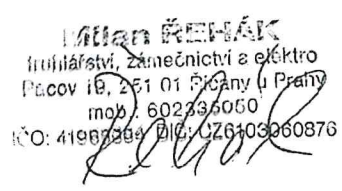 Milan ŘEHÁK
truhlářství, zámečnictví a elektro
Pacov 19, 251 01 Říčany u Prahy
mob.: 602336050
IČO: DIČ: CZ6103060876
Řehák